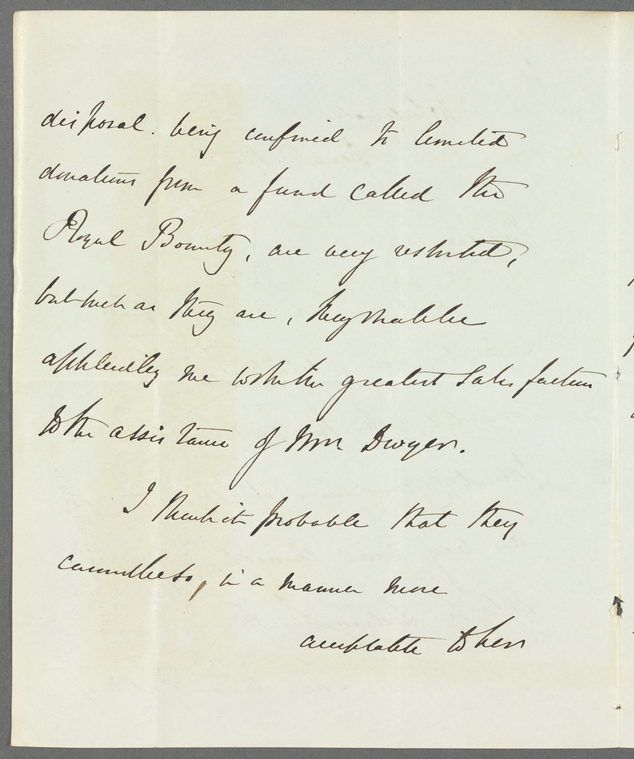 disposal. being confined to limited
donations from a fund called the
Royal Bounty, are very restricted,
but such as they are, they shall be
applied by me with the greatest satisfaction
to the assistance of Mrs Dwyer.
I think it probable that they
can
in a manner more
acceptable to her